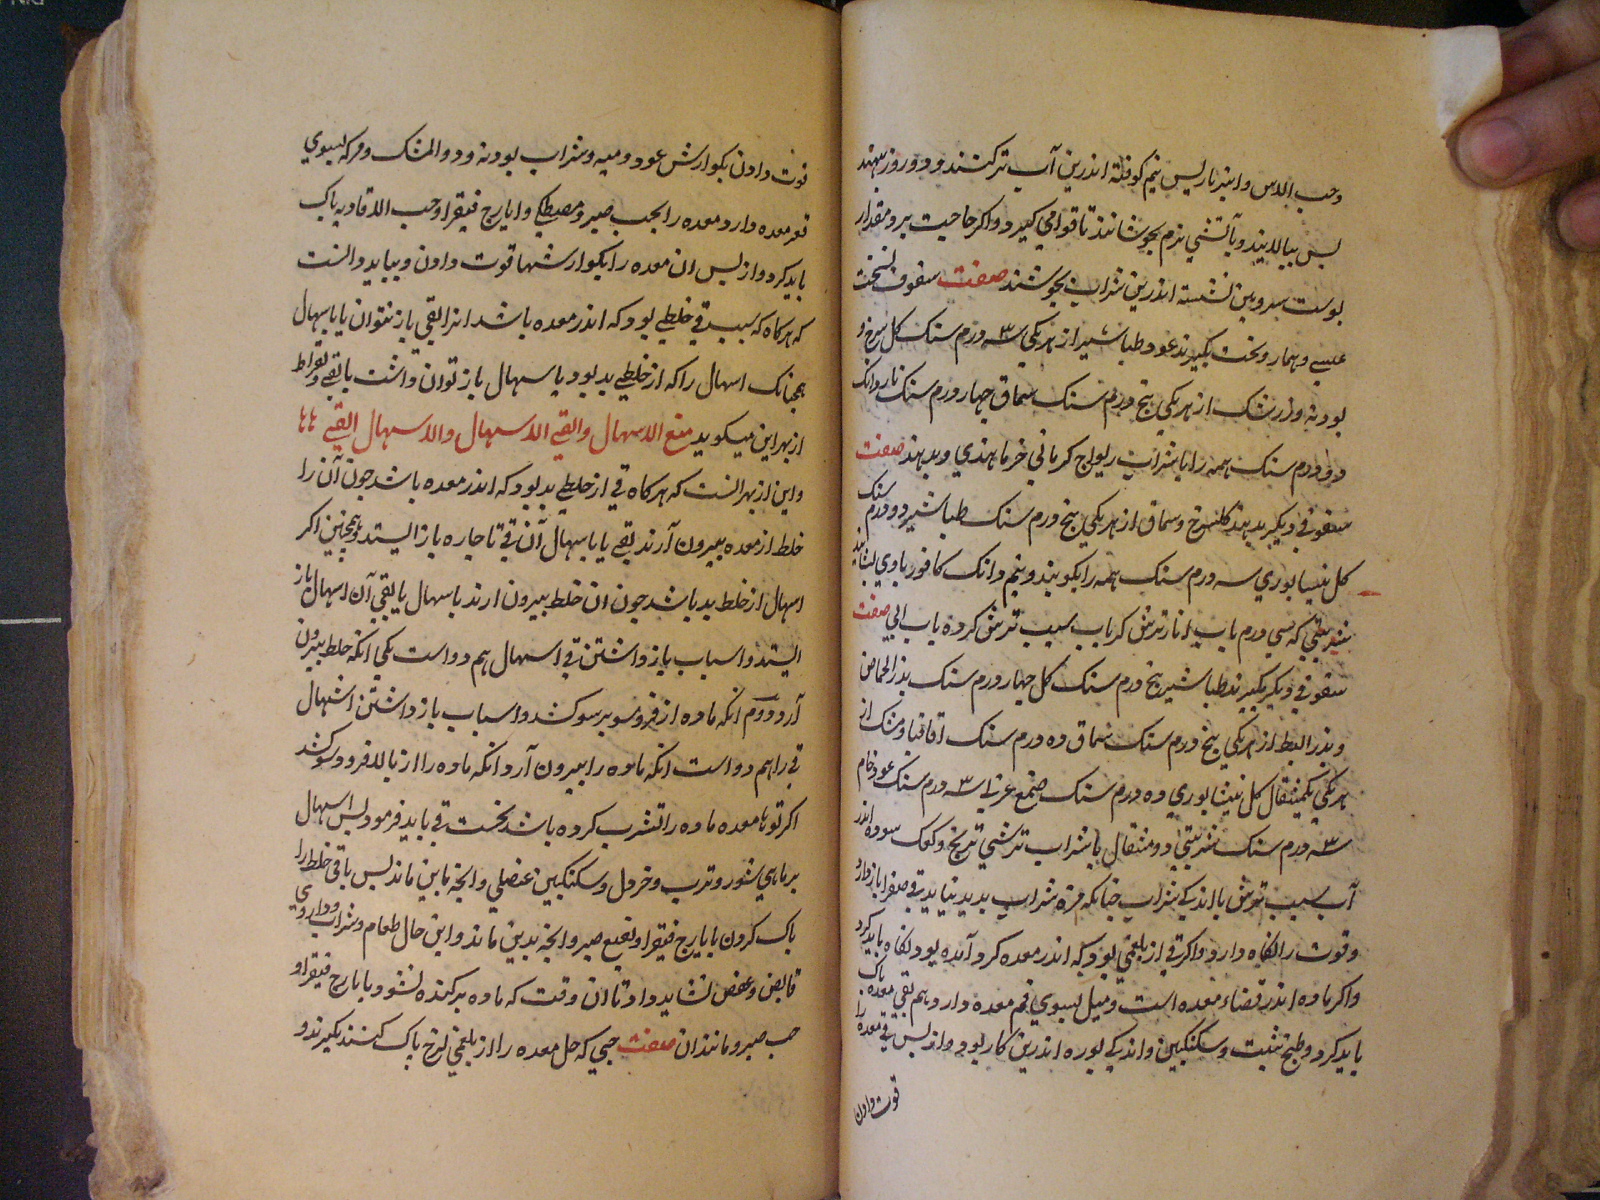 وحب الاس وانبرباریس نیم کوفته اندرین آب تر کنند و دو روز بنهند
پس بپالایند و بآتشی نرم بجوشانند تا قوامی کیرد و اکر حاجت بود مقدار
پوست بیرونین پسته اندرین شراب بجوشند صفت سفوف
بکیرند عود و طباشیر از هر یکی سه درم سنک کل سرخ و
پودنه و زرشک از هر یکی پنج درم سنک سماق چهار درم سنک ناردانک
دو درم سنک همه را با شراب ریواج خرما هندی بدهند صفت
سفوفی دیکر کلسرخ و سماق از هر یکی پنج درم سنک طباشیر دو درم سنک
کل نیشابوری سه درم سنک همه را بکوبند و نیم دانک کافور
شربتی که سی درم باب انار ترش کر باب سیب ترش کرده یاب ابی صفت
سفوفی دیکر بکیرند طباشیر پنج درم سنک کل چهار درم سنک بذر الحماض
از هر یکی پنج درم سنک سماق ده درم سنک اقاقیا و مشک از
هر یکی یکمثقال کل نیشابوری ده درم سنک صمغ عربی سه درم سنک عود خام
سه درم سنک شربتی دو مثقال با شراب ترشی ترنج و کعک سوده اندر
آب سیب ترش با اندکی شراب چنانکه مزه شراب پدید نیاید قی صفرا باز دارد
و قوت را نکاه دارد و اکر قی از بلغمی بود که اندر معده کرد آمده بود نکاه باید کرد
و اکر ماده اندر فضاء معده است و میل بسوی فم معده دارد هم بقی معده پاک
باید کرد و طبخ شبت و سکنکبین و اندکی بوره اندرین کار بود و از پس قی معده را
قوت دادن
قوت دادن بکوارش عود و میبه و شراب پودنه و دوالمشک و هر که بسوی
قعر معده دارد معده را بحب صبر و مصطکی و ایارج فیقرا و حب الافاویه پاک
باید کرد و از پس ان معده را بکوارشها قوت دادن و بباید دانست
که هر کاه که سبب قی خلطی بود که اندر معده باشد انرا بقی باز نتوان یا باسهال
همچنانک اسهال را که از خلطی بد بود باسهال باز توان داشت یا بقی و بقراط
از بهر این میکوید منع الاسهال والقی الاسهال والاسهال القی
و این از بهر انست که هر کاه قی از خلطی بد بود که اندر معده باشد چون آن را
خلط از معده بیرون آرند بقی یا باسهال آن قی ناچاره باز ایستد و همچنین اکر
اسهال از خلط بد باشد چون ان خلط بیرون ارند باسهال یا بقی آن اسهال باز
ایستد و اسباب باز داشتن قی اسهال هم دو است یکی انکه خلط بیرون
آرد و دوم انکه ماده از فرو سو بر سو کشد و اسباب باز داشتن اسهال
قی را هم دو است انکه ماده را بیرون آرد و انکه ماده را از بالا فرود سو کشد
اکر تو تا معده ماده را تشرب کرده باشد نخست قی باید فرمود پس اسهال
بر ماهی شور و ترب و خردل و سکنکبین عنصلی و انچه بدین ماند پس باقی خلط را
پاک کردن بایارج فیقرا و نقیع صبر و انچه بدین ماند و این حال طعام و شراب و داروی
قابض و عفص نشاید داد تا ان وقت که ماده برکنده نشود بایارج فیقرا و
حب صبر و مانند ان صفت حبی که حل معده را از بلغمی لزج پاک کنند بکیرند